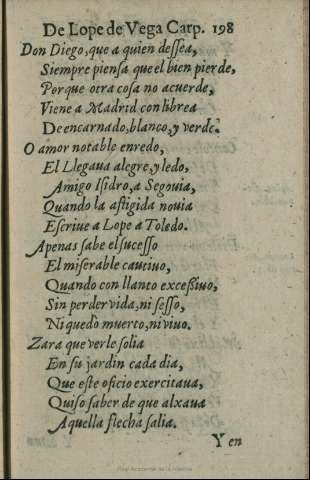 De Lope de Vega Carp. 198
Don Diego, que a quien dessea,
Siempre piensa que el bien pierde,
Porque otra cosa no acuerde,
Viene a Madrid con librea
De encarnado, blanco, y verde.
O amor notable enredo,
El Llegaua alegre, y ledo,
Amigo Isidro, a Segouia,
Quando la afligida nouia
Escriue a Lope a Toledo.
Apenas sabe el sucesso
El miserable cautiuo,
Quando con llanto excessiuo,
Sin perder vida, ni sesso,
Ni quedò muerto, ni viuo.
Zara que verle solia
En su jardin cada dia,
Que este oficio exercitaua,
Quiso saber de que aljaua
Aquella flecha salia.
Y en